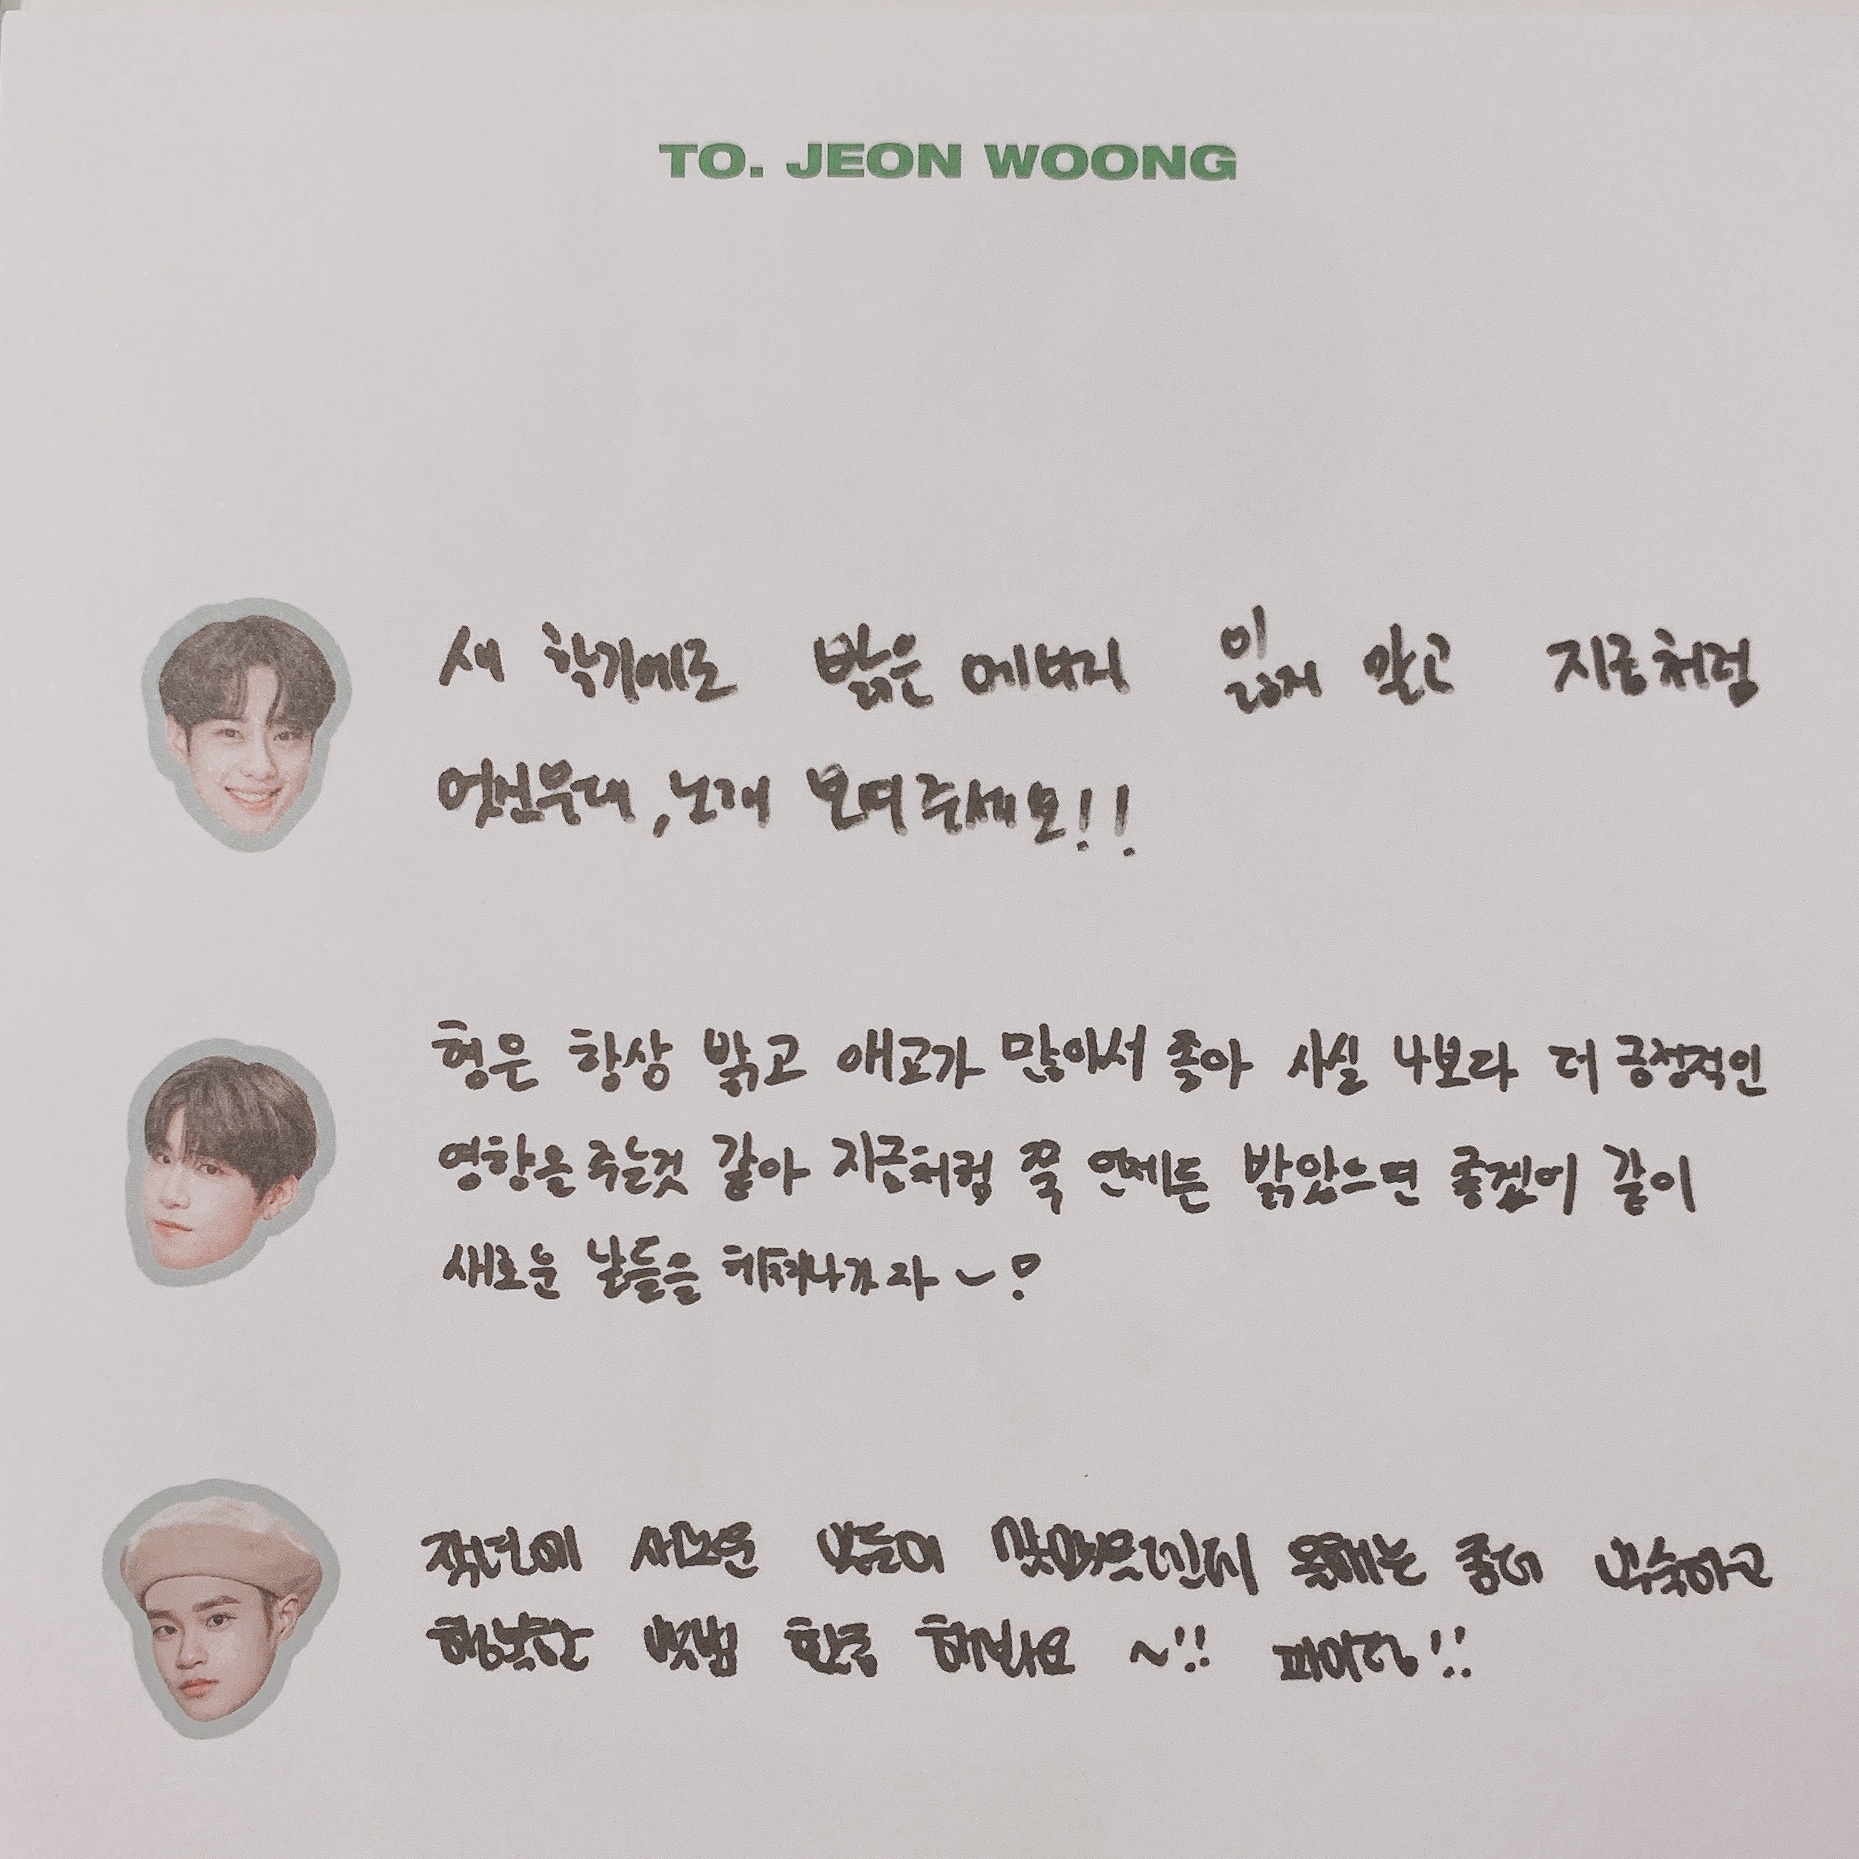 TO. JEON WOONG
새 학기에도 밝은 에너지 잃지 말고 지금처럼
멋진무대, 노래 보여주세요!!
형은 항상 밝고 애교가 많아서 좋아 사실 나보다 더 긍정적인
영향을 주는것 같아 지금처럼 쭉 언제든 밝았으면 좋겠어 같이
새로운 날들을 헤쳐나가자~
작년에 새로운 벗들이 많았을텐데 올해는 좀더 익숙하고
행복한 활동 해봐요 ~!! 파이팅!!